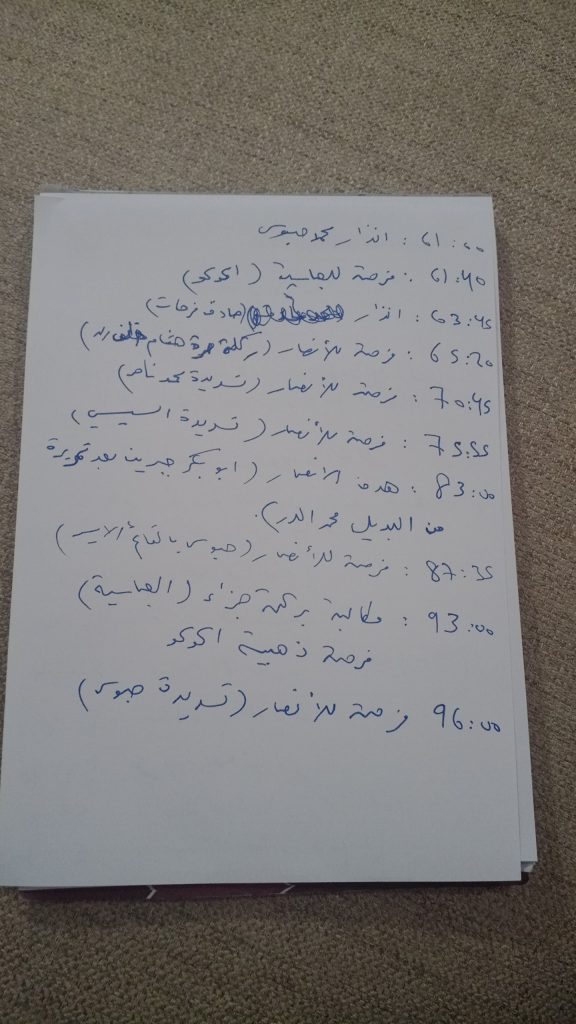 61:00 : انذار محمد حبوس
61:40 : فرصة للعباسية (اكوكو)
63:45 : انذار (صادق فرحات)
65:20 : فرصة للأنصار (ركلة حرة هشام خلف الله)
70:45 : فرصة للأنصار (تسديدة محمد ناصر)
75:55 : فرصة للأنصار (تسديدة السيسي)
83:00 : هدف الانصار (ابو بكر جبرين بعد تمريرة
من البديل محمد الدر).
87:35 : فرصة للأنصار (حبوس بالقائم الايسر)
93:00 : مطالبة بركلة جزاء (العباسية)
فرصة ذهبية اكوكو
96:00 فرصة للأنصار (تسديدة حبوس)